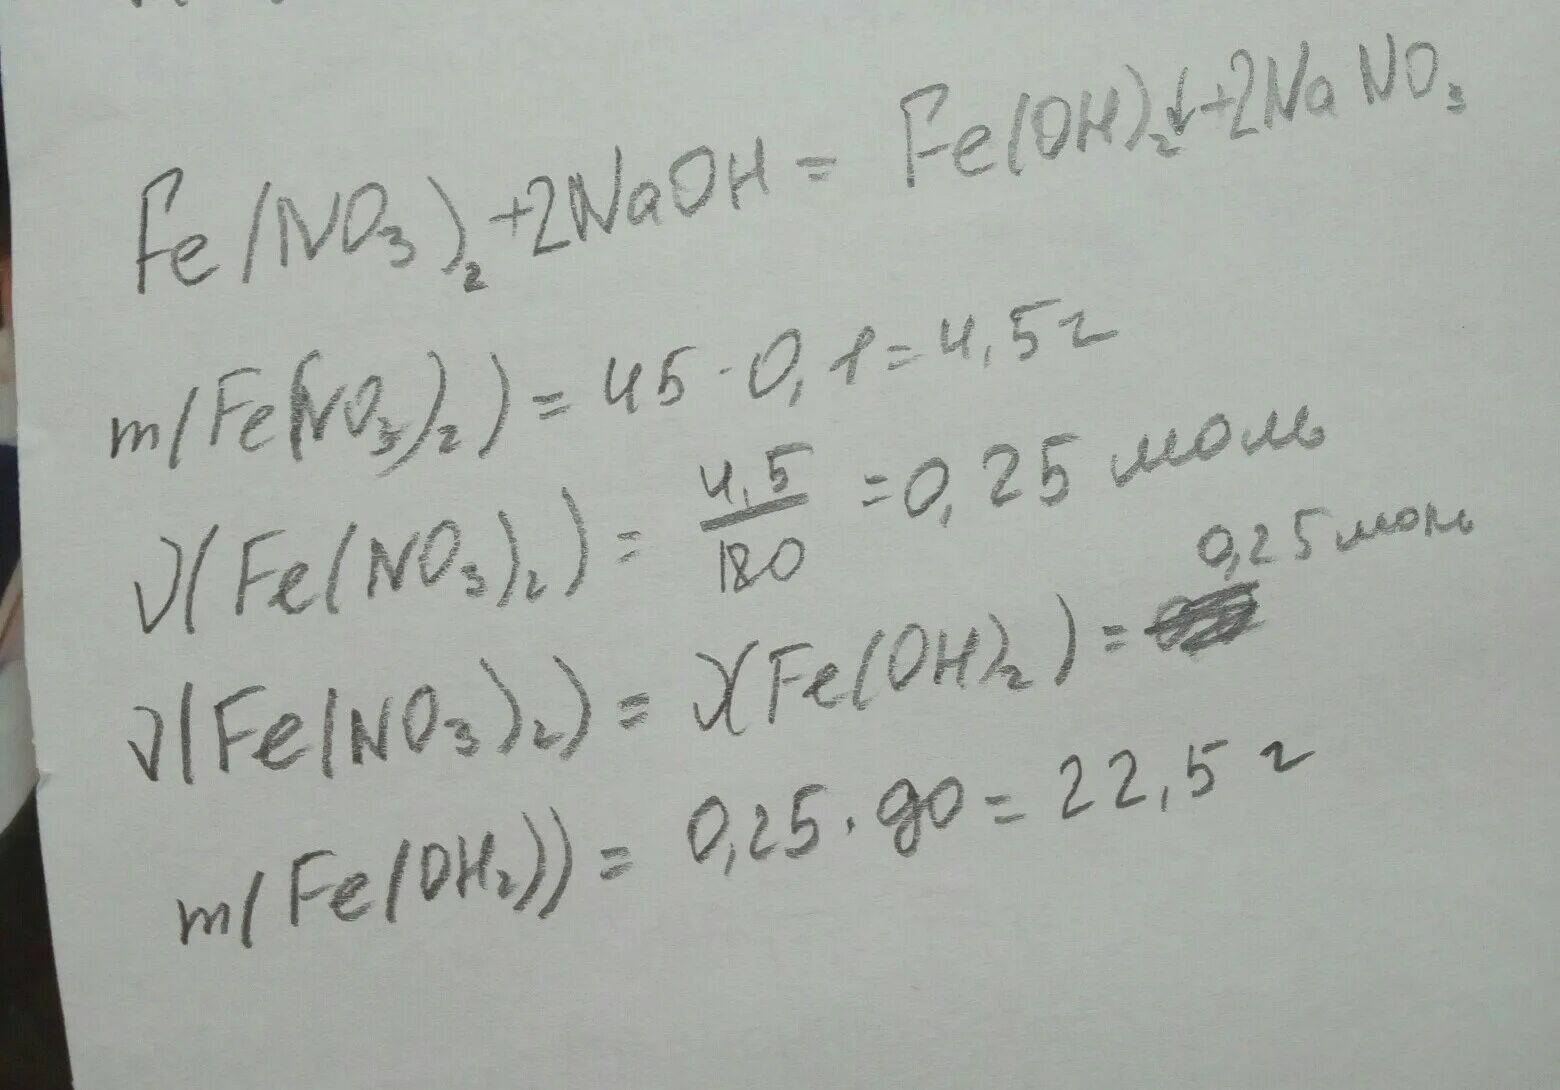 Fe(NO₃)₂+2NaOH = Fe(OH)₂↓+2NaNO₃
m(Fe(NO₃)₂) = 45·0,1=4,5г
ν(Fe(NO₃)₂) = 4,5/180 =0,25 моль
ν(Fe(NO₃)₂) = ν(Fe(OH)₂) = 0,25 моль
m(Fe(OH₂)) = 0,25·90=22,5 г